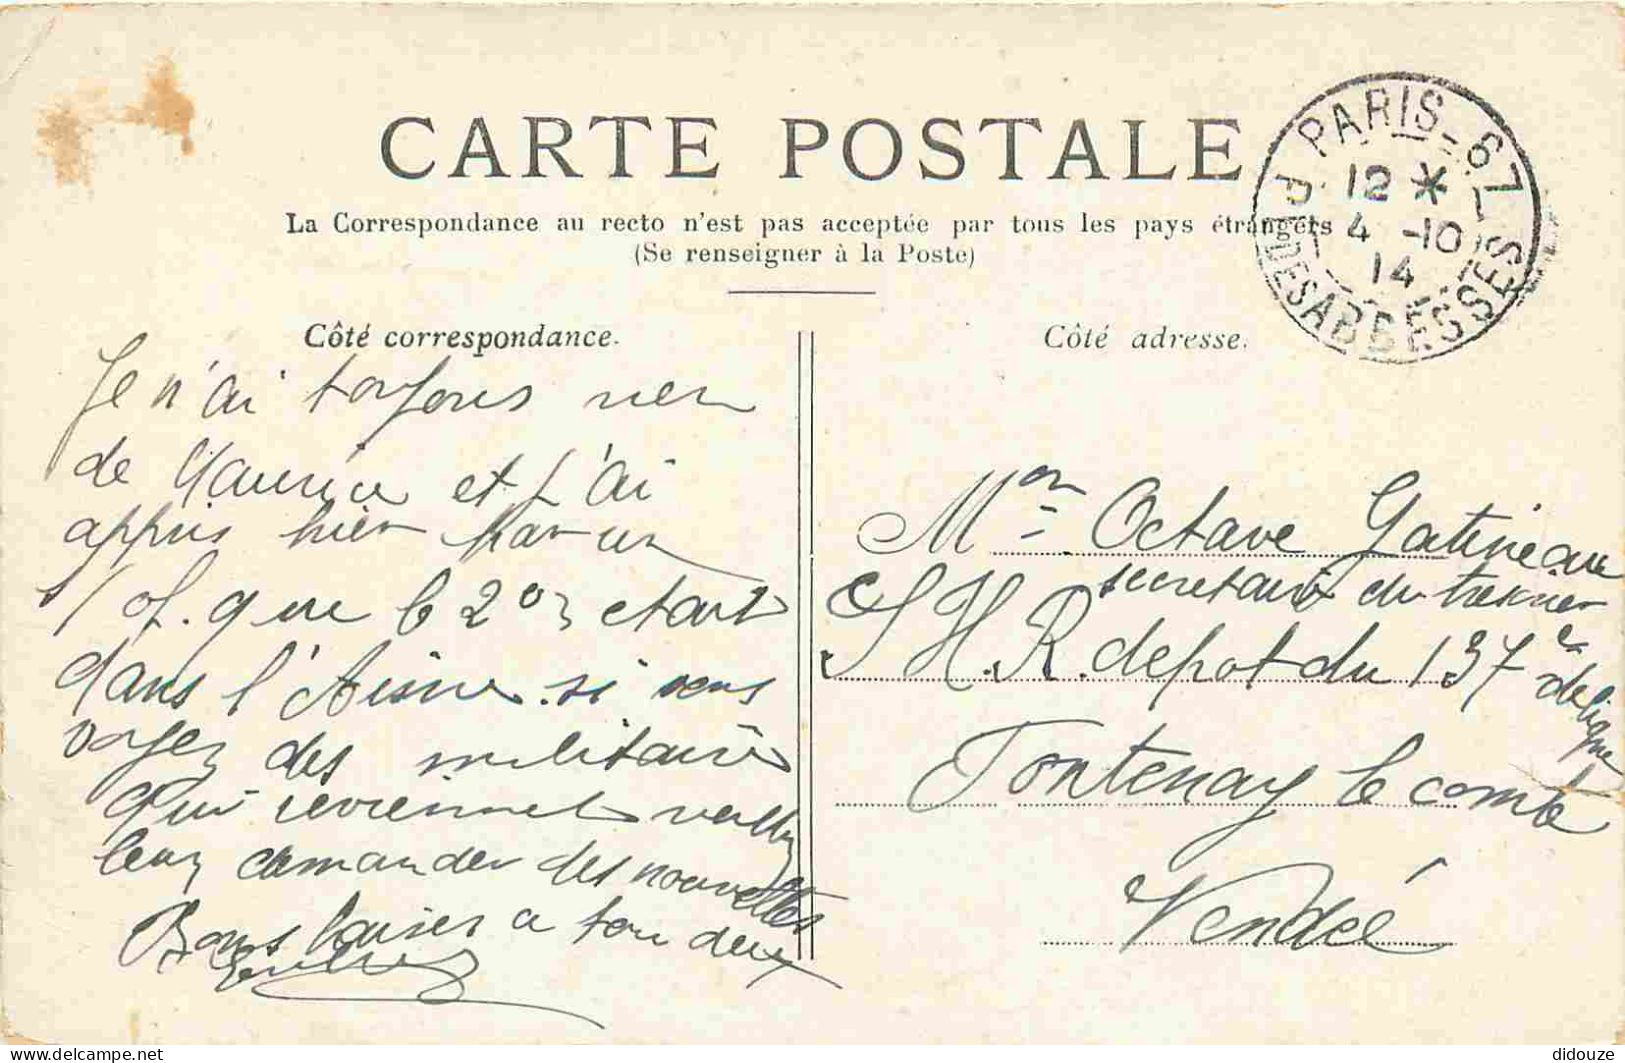 CARTE POSTALE
La Correspondance au recto n'est pas acceptée par tous les pays étrangers
(Se renseigner à la Poste)
PARIS - 67
12 *
4 -10
14
PL. DES ABBESSES
Côté correspondance.
Je n'ai toujours rien
de Maurice et j'ai
appris hier par un
of. que le 2 etait
dans l'Aisne. si vous
voyez des militaires
qui reviennent
leur demander des nouvelles
Bons baisers a tou deux
Côté adresse.
Mon Octave Gatineau
secretaire du tresorier
S H. R. depot du 137e de ligne
Fontenay le comte
Vendée
Delcampe.net
didouze